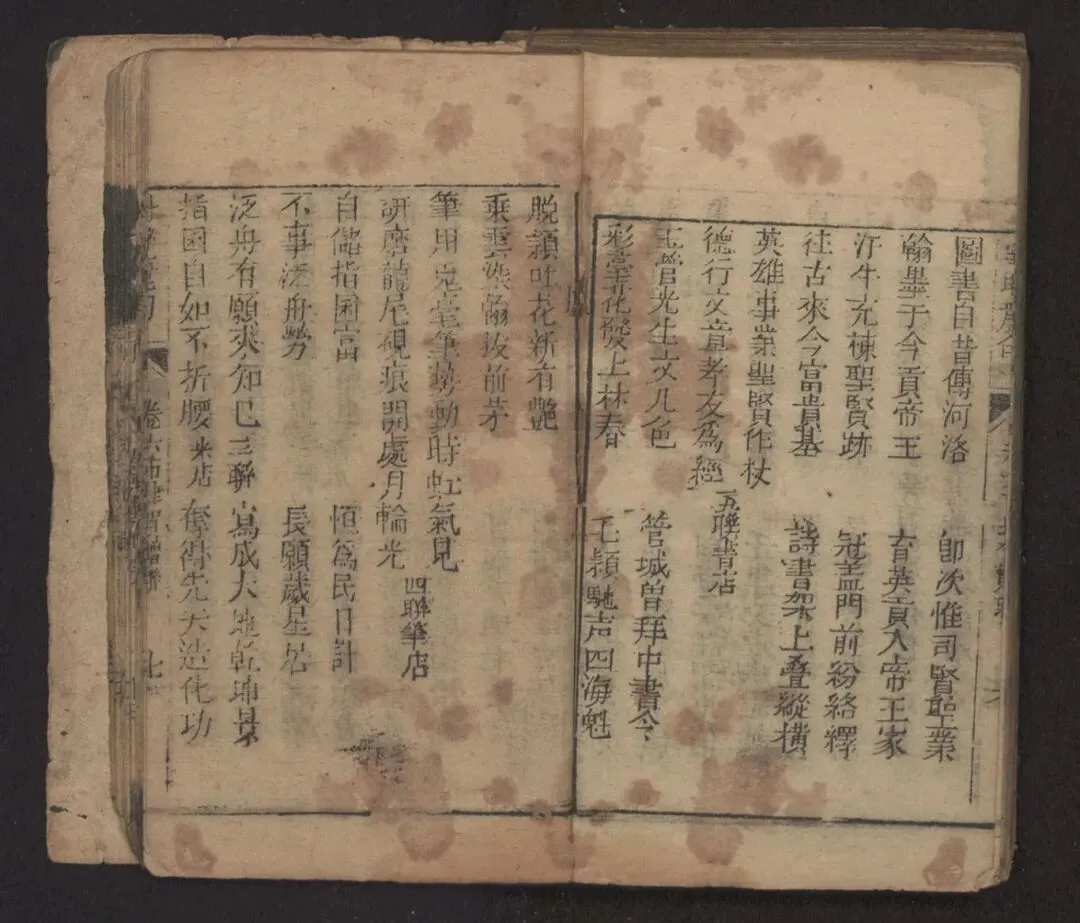 圖書自昔傳河洛　即次惟司賢聖業
翰墨于今貢帝王　育英貢入帝王家
汗牛充棟聖賢跡　冠盖門前紛絡繹
往古來今富貴基　詩書架上叠縱橫
英雄事業聖賢作杖
德行文章孝友為經　五聯書店
玉管光生文几色　管城曾拜中書令
彩毫花發上林春　毛穎馳声四海魁
脫穎吐花新有艷
乘雲染翰拔前茅
筆用兎毫筆勢動時虹氣見
研磨龍尾硯痕開處月輪光　四聯筆店
自儲指囷富　恒為民日計
不事泛舟勞　長願歲星居
泛舟有願來知已　三聯　寫成大地乾坤景
指囷自如不折腰　米店　奪得先天造化功
卷六　七